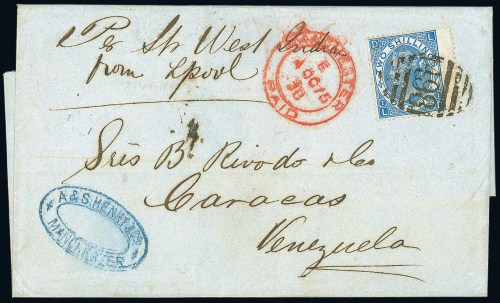 Per Str West Indian
from Lpool
MANCHESTER
E
4 OC 75
30
PAID
TWO SHILLINGS
D L
L D
498
Sres B. Rivodo & Co
Caracas
Venezuela
A & S. HENRY & Co
MANCHESTER